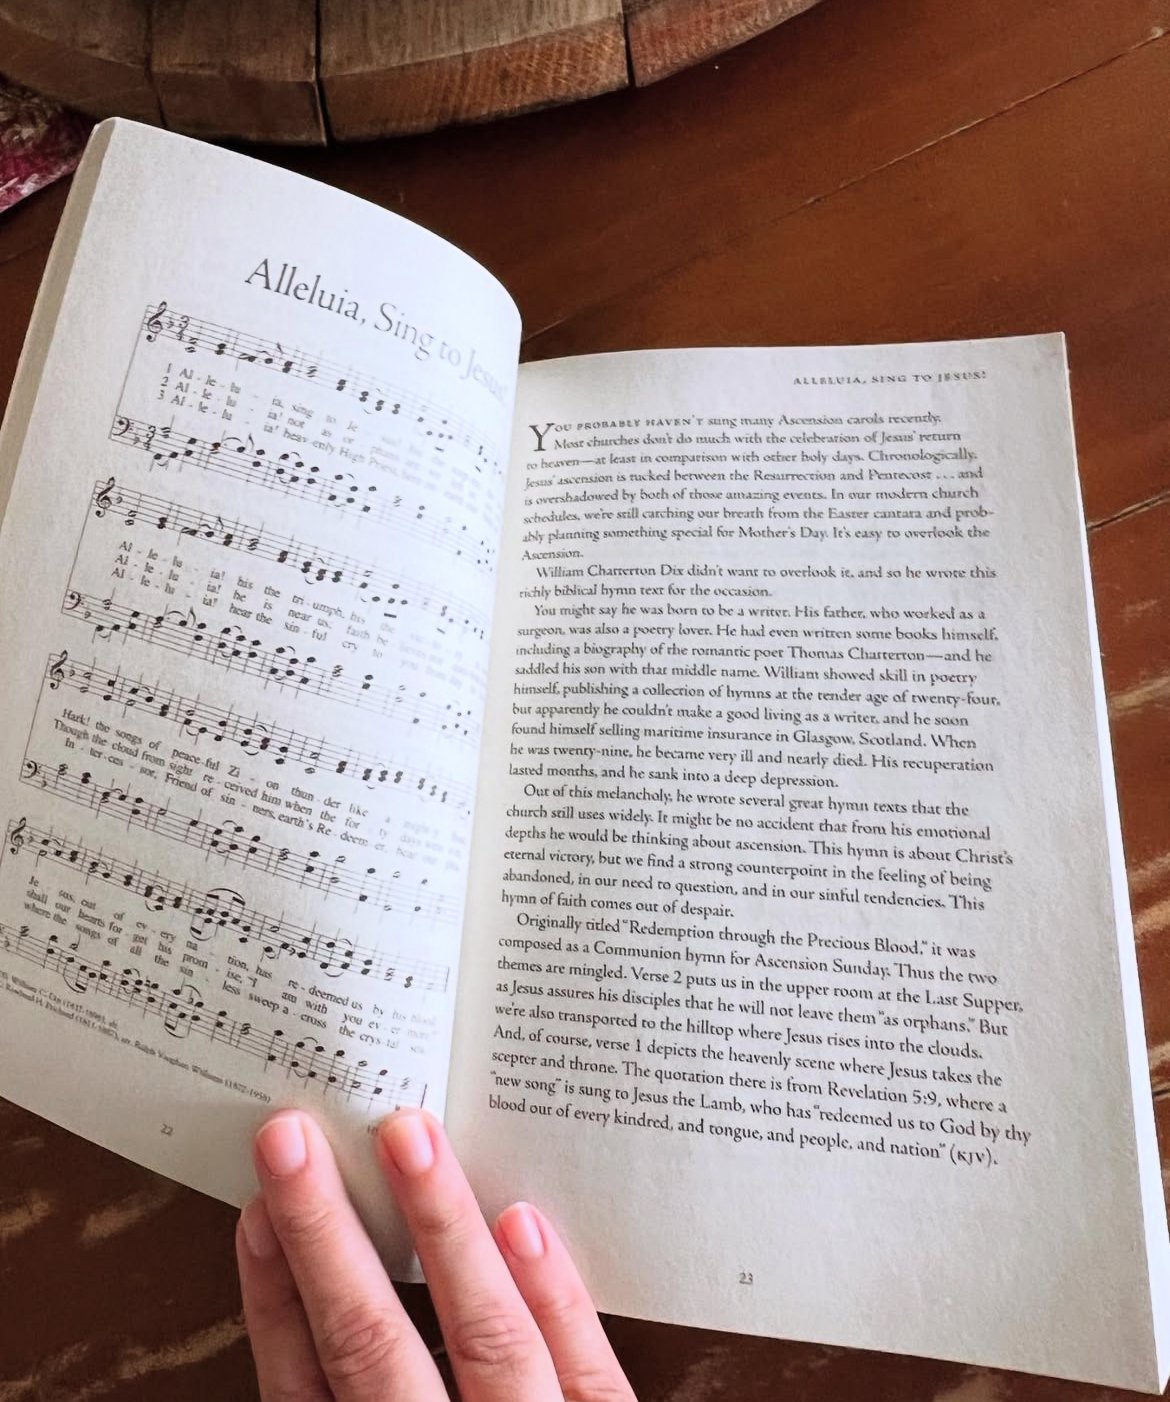 Alleluia, Sing to Jesus!
1 Al - le - lu - ia, sing to Je
2 Al - le - lu - ia! not as or - phans
3 Al - le - lu - ia! heav-enly High Priest,
Al - le - lu - ia! his the tri - umph, his the
Al - le - lu - ia! he is near us, faith be
Al - le - lu - ia! hear the sin - ful cry to you
Hark! the songs of peace-ful Zi - on thun - der like a
Though the cloud from sight re - ceived him when the for ty days
In - ter-ces - sor, Friend of sin - ners, earth's Re - deem er, hear
Je sus, out of ev - ery na - tion, has re - deemed us by his blood.
shall our hearts for get his prom - ise, "I am with you ev er more"
where the songs of all the sin less sweep a - cross the crys - tal sea.
William C. Dix (1837-1898), alt.
Rowland H. Prichard (1811-1887); arr. Ralph Vaughan Williams (1872-1958)
22
ALLELUIA, SING TO JESUS!
YOU PROBABLY HAVEN'T sung many Ascension carols recently.
Most churches don't do much with the celebration of Jesus' return
to heaven—at least in comparison with other holy days. Chronologically,
Jesus' ascension is tucked between the Resurrection and Pentecost . . . and
is overshadowed by both of those amazing events. In our modern church
schedules, we're still catching our breath from the Easter cantata and prob-
ably planning something special for Mother's Day. It's easy to overlook the
Ascension.
William Chatterton Dix didn't want to overlook it, and so he wrote this
richly biblical hymn text for the occasion.
You might say he was born to be a writer. His father, who worked as a
surgeon, was also a poetry lover. He had even written some books himself,
including a biography of the romantic poet Thomas Chatterton—and he
saddled his son with that middle name. William showed skill in poetry
himself, publishing a collection of hymns at the tender age of twenty-four,
but apparently he couldn't make a good living as a writer, and he soon
found himself selling maritime insurance in Glasgow, Scotland. When
he was twenty-nine, he became very ill and nearly died. His recuperation
lasted months, and he sank into a deep depression.
Out of this melancholy, he wrote several great hymn texts that the
church still uses widely. It might be no accident that from his emotional
depths he would be thinking about ascension. This hymn is about Christ's
eternal victory, but we find a strong counterpoint in the feeling of being
abandoned, in our need to question, and in our sinful tendencies. This
hymn of faith comes out of despair.
Originally titled "Redemption through the Precious Blood," it was
composed as a Communion hymn for Ascension Sunday. Thus the two
themes are mingled. Verse 2 puts us in the upper room at the Last Supper,
as Jesus assures his disciples that he will not leave them "as orphans." But
we're also transported to the hilltop where Jesus rises into the clouds.
And, of course, verse 1 depicts the heavenly scene where Jesus takes the
scepter and throne. The quotation there is from Revelation 5:9, where a
"new song" is sung to Jesus the Lamb, who has "redeemed us to God by thy
blood out of every kindred, and tongue, and people, and nation" (KJV).
23